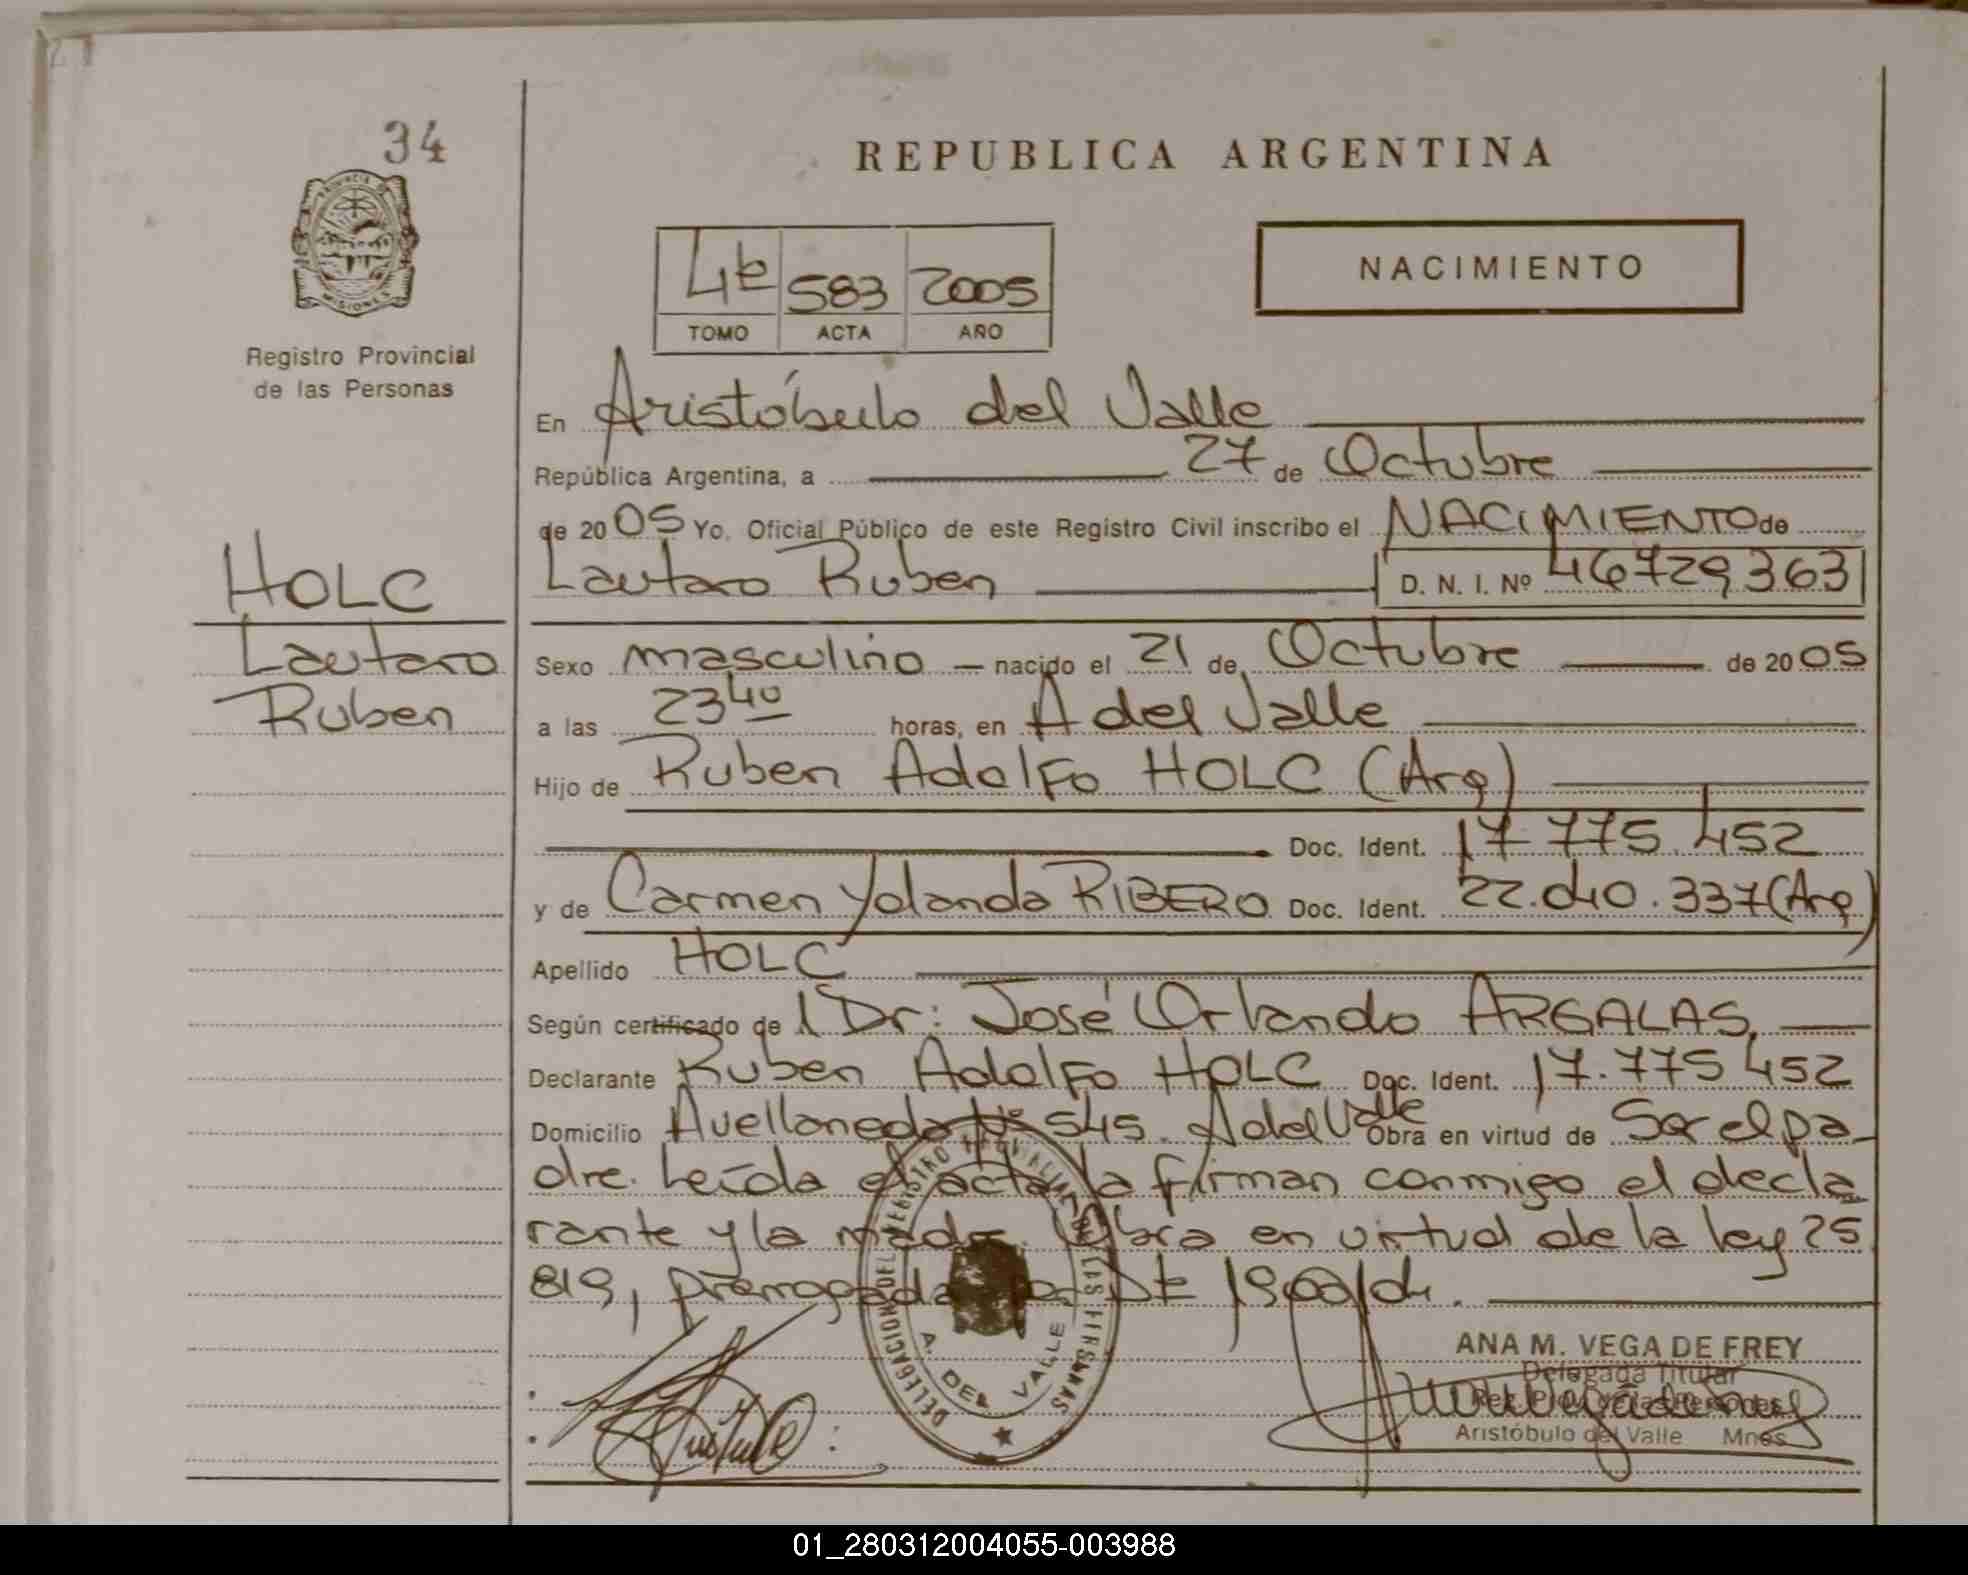 34
PROVINCIA DE
MISIONES
Registro Provincial
de las Personas
HOLC
Lautaro
Ruben
REPUBLICA ARGENTINA
4t 583 2005
TOMO ACTA AÑO
NACIMIENTO
En Aristóbulo del Valle
República Argentina, a 27 de Octubre
de 2005 Yo, Oficial Público de este Registro Civil inscribo el NACIMIENTO de
Lautaro Ruben D. N. I. Nº 46729363
Sexo masculino nacido el 21 de Octubre de 2005
a las 23 40 horas, en A del Valle
Hijo de Ruben Adolfo HOLC (Arg)
Doc. Ident. 17.775.452
y de Carmen Yolanda RIBERO Doc. Ident. 22.040.337 (Arg)
Apellido HOLC
Según certificado de l Dr: José Orlando ARGALAS
Declarante Ruben Adolfo HOLC Doc. Ident. 17.775.452
Domicilio Avellaneda Nº 545. A del Valle Obra en virtud de Ser el pa
dre. Leída el acta la firman conmigo el decla
rante y la madre. Obra en virtud de la ley 25
819, prerrogada
DELEGACION DEL REGISTRO PROVINCIAL DE LAS PERSONAS
A. DEL VALLE
ANA M. VEGA DE FREY
Delegada Titular
Reg. Prov. de las Personas
Aristóbulo del Valle Mnes
01_280312004055-003988